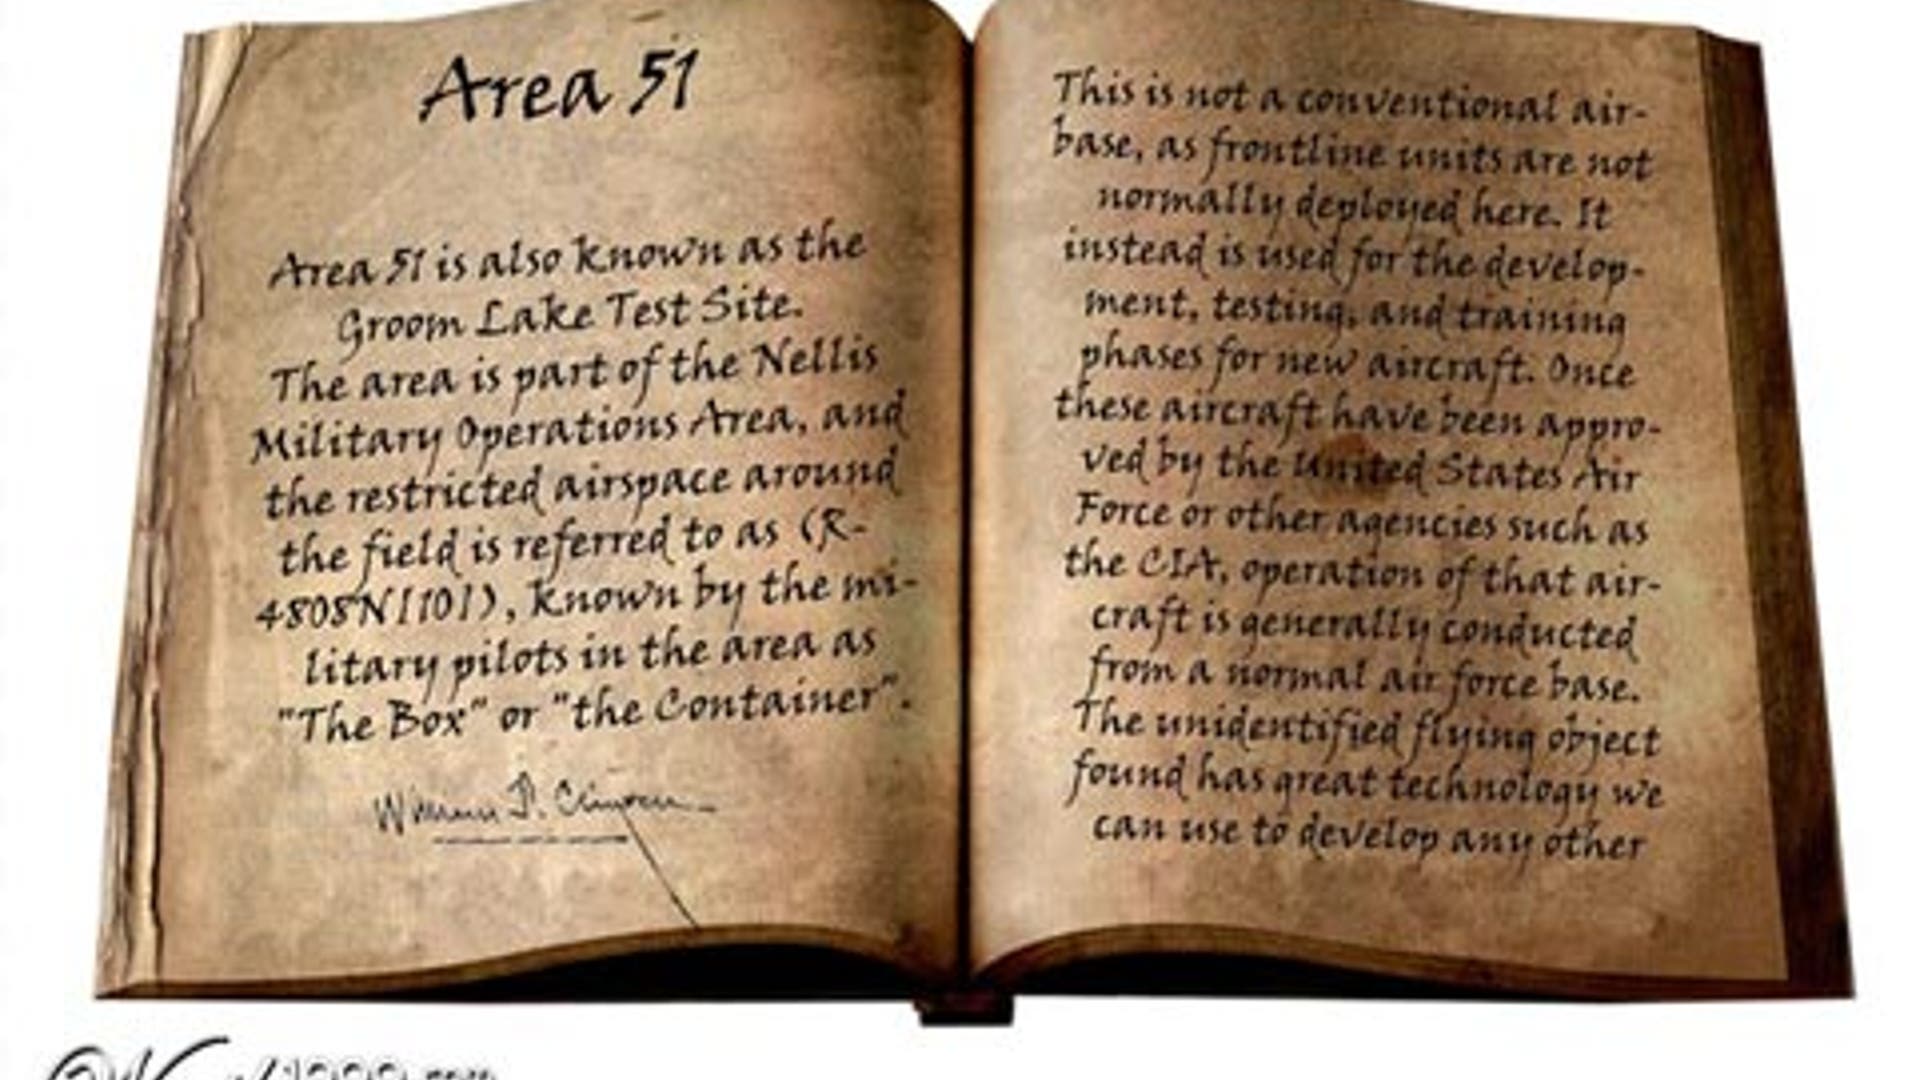 Area 51
Area 51 is also known as the
Groom Lake Test Site.
The area is part of the Nellis
Military Operations Area, and
the restricted airspace around
the field is referred to as (R-
4808N[101), known by the mi-
litary pilots in the area as
"The Box" or "the Container".
William J. Clinton
This is not a conventional air-
base, as frontline units are not
normally deployed here. It
instead is used for the develop-
ment, testing, and training
phases for new aircraft. Once
these aircraft have been appro-
ved by the United States Air
Force or other agencies such as
the CIA, operation of that air-
craft is generally conducted
from a normal air force base.
The unidentified flying object
found has great technology we
can use to develop any other